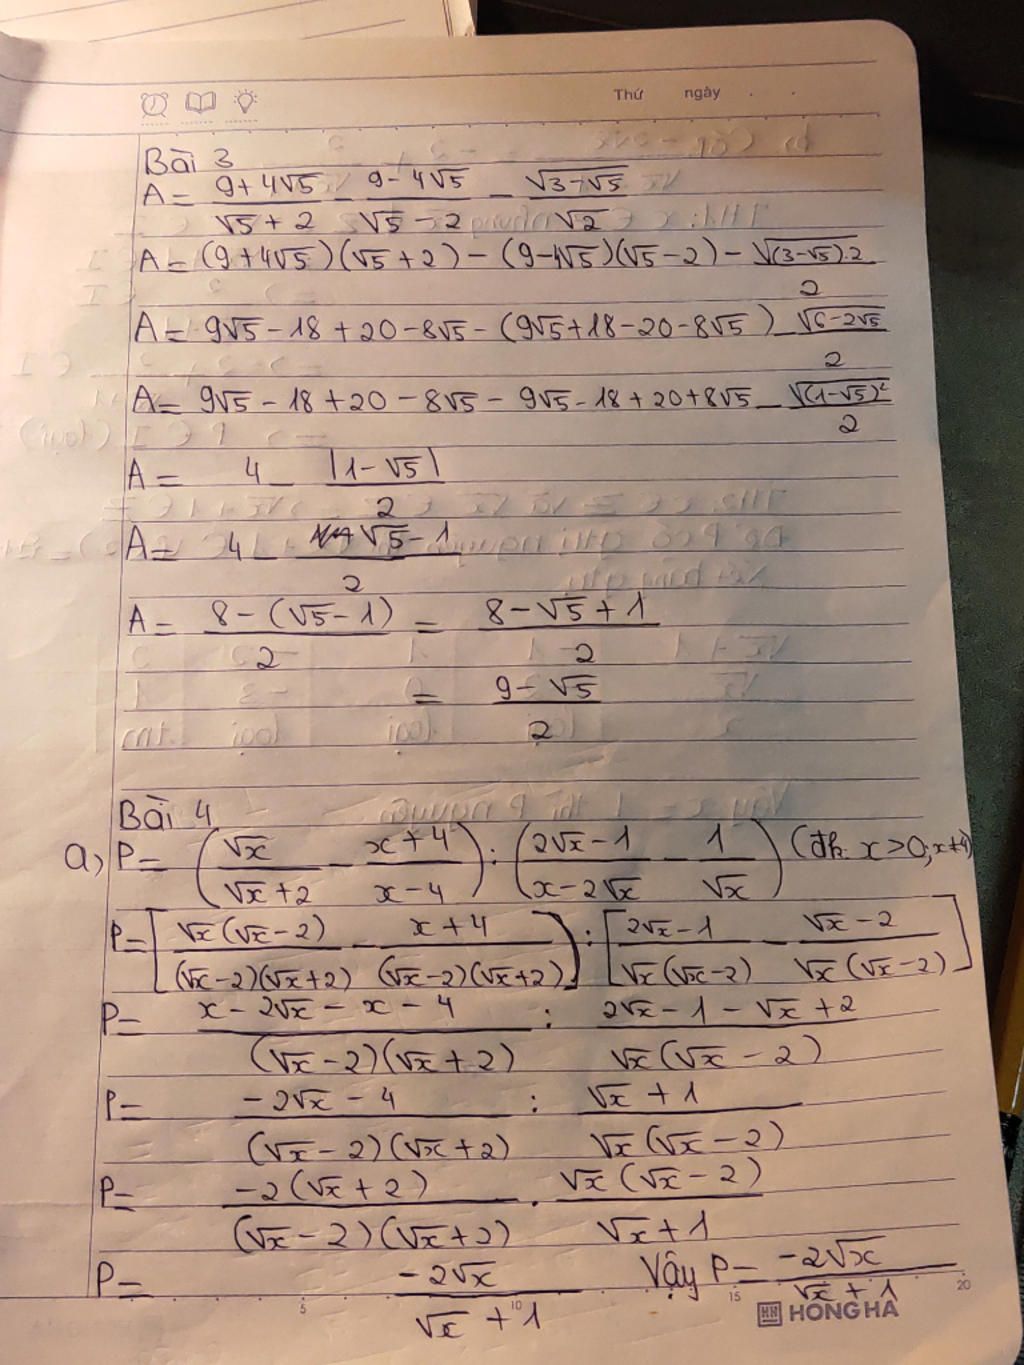 Thứ ngày
Bài 3
A = (9+4√5)/(√5+2) - (9-4√5)/(√5-2) - √(3-√5)/√2
A = (9+4√5)(√5+2) - (9-4√5)(√5-2) - √((3-√5).2)/2
A = 9√5 - 18 + 20 - 8√5 - (9√5 + 18 - 20 - 8√5) - √(6-2√5)/2
A = 9√5 - 18 + 20 - 8√5 - 9√5 - 18 + 20 + 8√5 - √((1-√5)²)/2
A = 4 - |1-√5|/2
A = 4 - (√5-1)/2
A = (8-(√5-1))/2 = (8-√5+1)/2
= (9-√5)/2
Bài 4
a, P = (√x/(√x+2) - (x+4)/(x-4)) : ((2√x-1)/(x-2√x) - 1/√x) (đk: x>0; x≠4)
P = [√x(√x-2)/((√x-2)(√x+2)) - (x+4)/((√x-2)(√x+2))] : [(2√x-1)/(√x(√x-2)) - (√x-2)/(√x(√x-2))]
P = (x-2√x-x-4)/((√x-2)(√x+2)) : (2√x-1-√x+2)/(√x(√x-2))
P = (-2√x-4)/((√x-2)(√x+2)) : (√x+1)/(√x(√x-2))
P = -2(√x+2)/((√x-2)(√x+2)) . √x(√x-2)/(√x+1)
P = -2√x/(√x+1) Vậy P = -2√x/(√x+1)
5 10 15 20
HH HONG HA